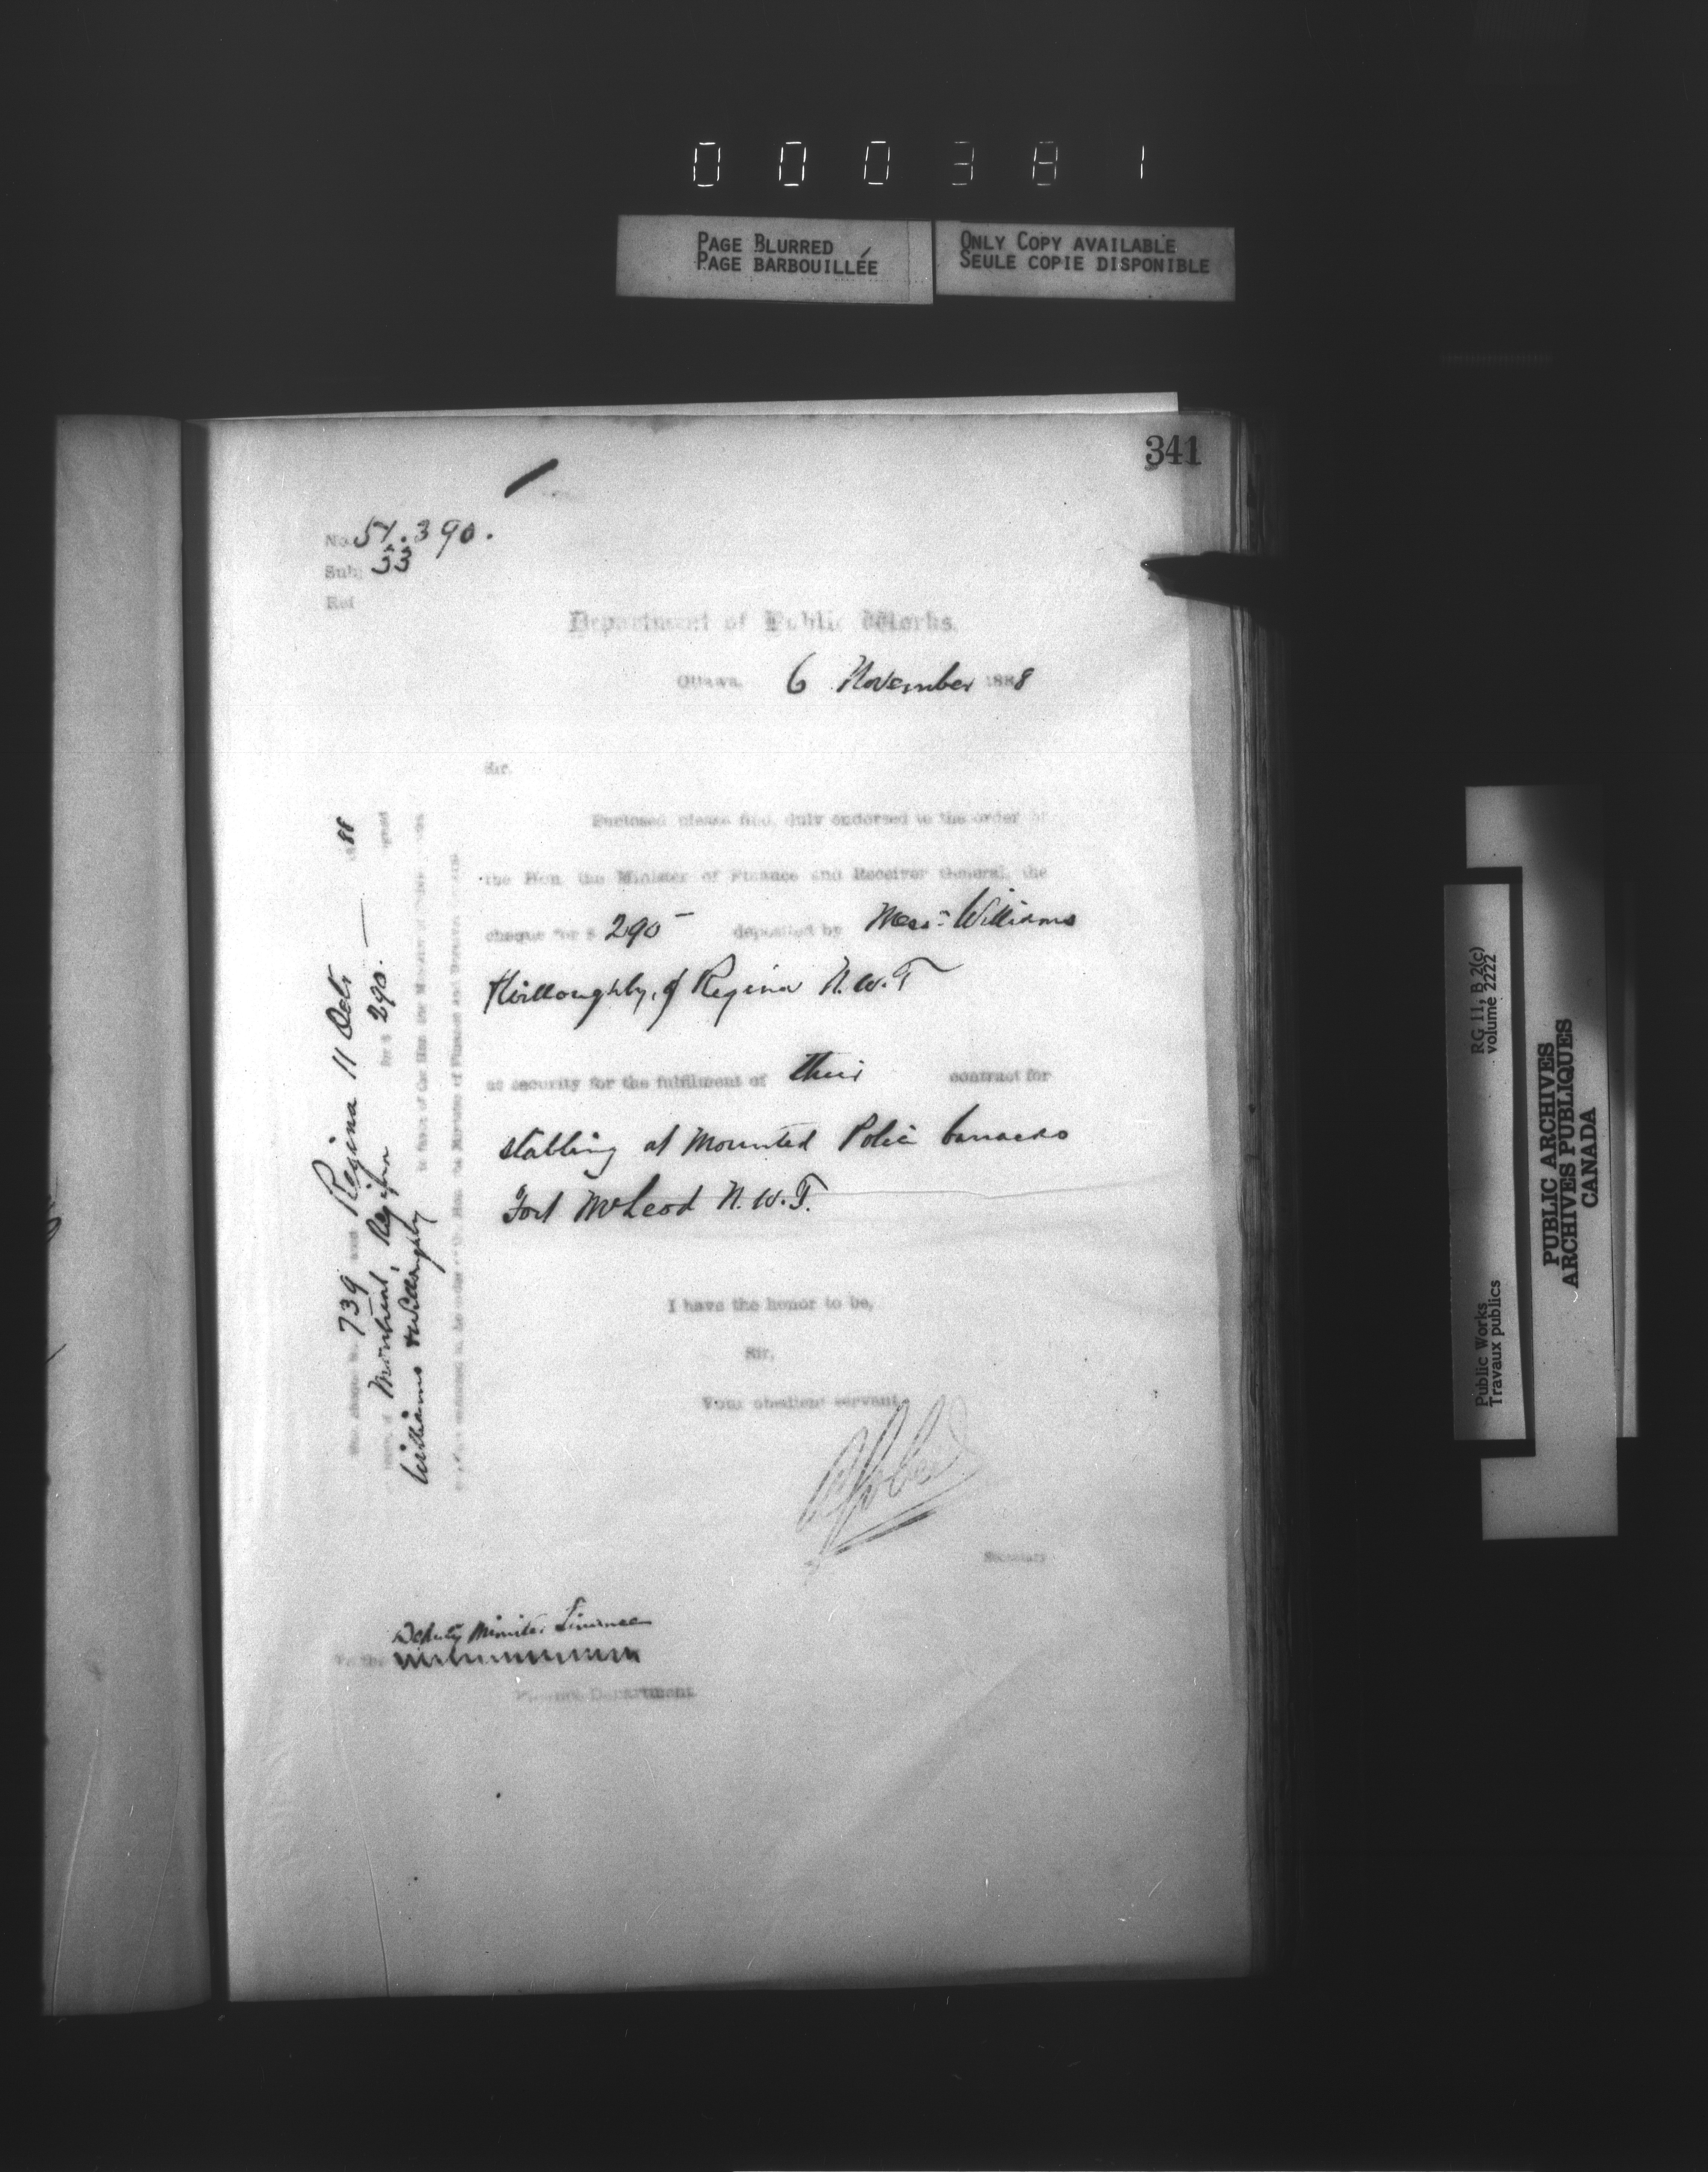 000381
PAGE BLURRED
PAGE BARBOUILLÉE
ONLY COPY AVAILABLE
SEULE COPIE DISPONIBLE
341
No. 390.
Sub. 33
Ref
Department of Public Works.
Ottawa, 6 November 1888
Sir,
Enclosed please find, duly endorsed to the order of
the Hon. the Minister of Finance and Receiver General, the
cheque for $ 290 - deposited by Messrs Williams
& Willoughby, of Regina N.W.T
as security for the fulfilment of their contract for
stabling at Mounted Police barracks
Fort McLeod N.W.T.
I have the honor to be,
Sir,
Your obedient servant,
Secretary
Deputy Minister Finance
To the
Finance Department
739 Regina 11 Octr 1888
Montreal, Regina for $ 290.—
Williams & Willoughby in favor of the Hon. the Minister of Public Works
the Minister of Finance and Receiver General
RG 11, B 2(c)
volume 2222
Public Works
Travaux publics
PUBLIC ARCHIVES
ARCHIVES PUBLIQUES
CANADA